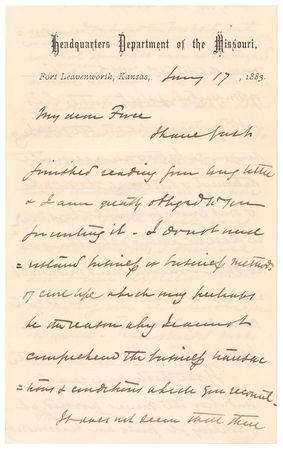 Headquarters Department of the Missouri,
Fort Leavenworth, Kansas, 17, 1883.
My dear
I have just
finished reading your long letter
& I am greatly obliged to you
for writing it - I do not under
=stand business or business methods
of civil life which may perhaps
be the reason why I cannot
comprehend the business transac
=tions & conditions which you recount -
It does not seem that there